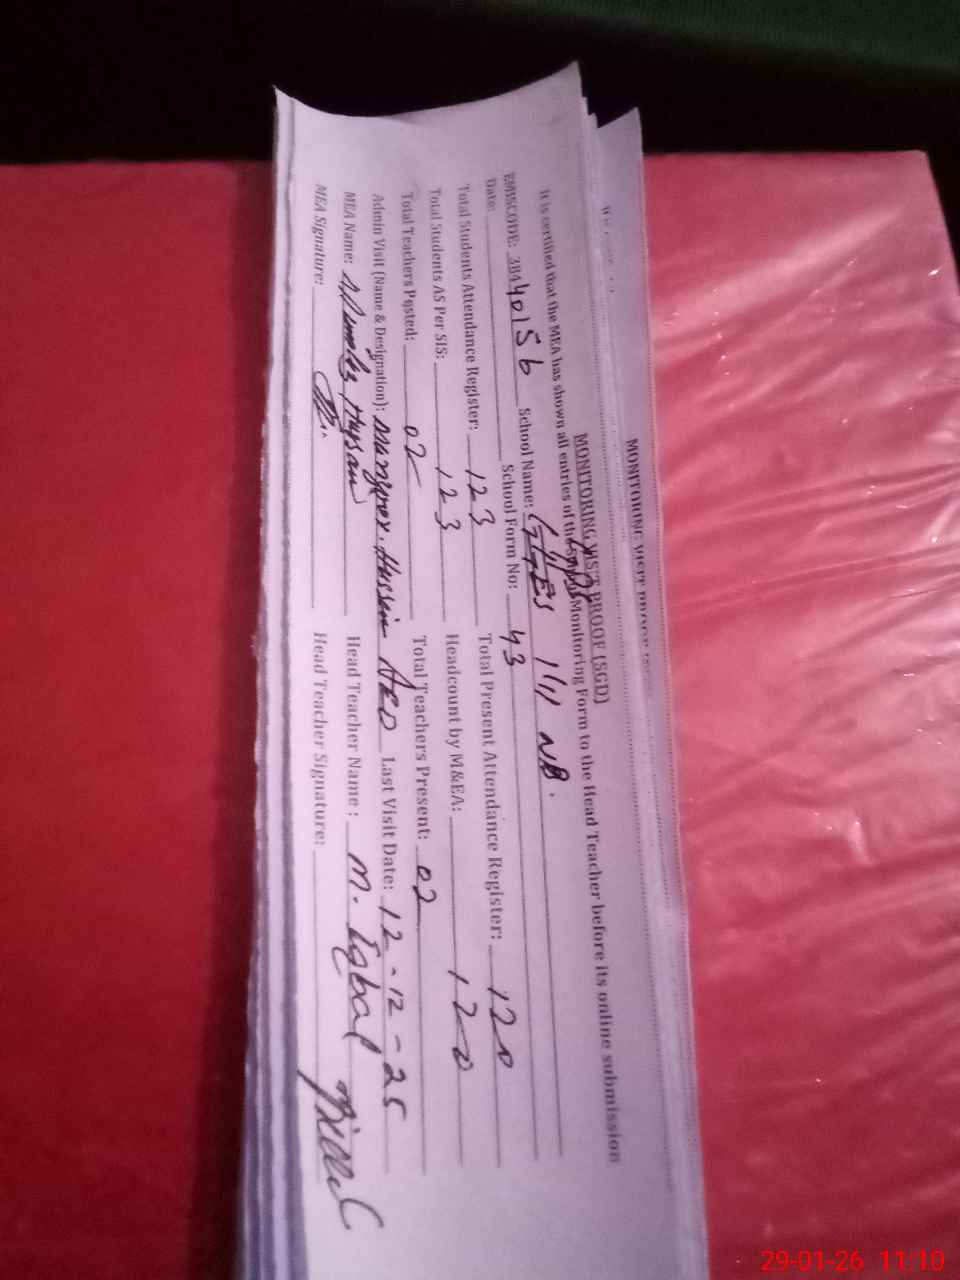 MONITORING VISIT PROOF
MONITORING VISIT PROOF (SGD)
It is certified that the MEA has shown all entries of the Monitoring Form to the Head Teacher before its online submission
EMISCODE: 38440156 School Name: GPS 111 NB.
Date: School Form No: 43
Total Students Attendance Register: 123 Total Present Attendance Register: 120
Total Students AS Per SIS: 123 Headcount by M&EA: 120
Total Teachers Posted: 02 Total Teachers Present: 02
Admin Visit (Name & Designation): Manzoor Hussain AEO Last Visit Date: 12-12-25
MEA Name: Hussain Head Teacher Name: M. Iqbal
MEA Signature: Head Teacher Signature:
29-01-26 11:10